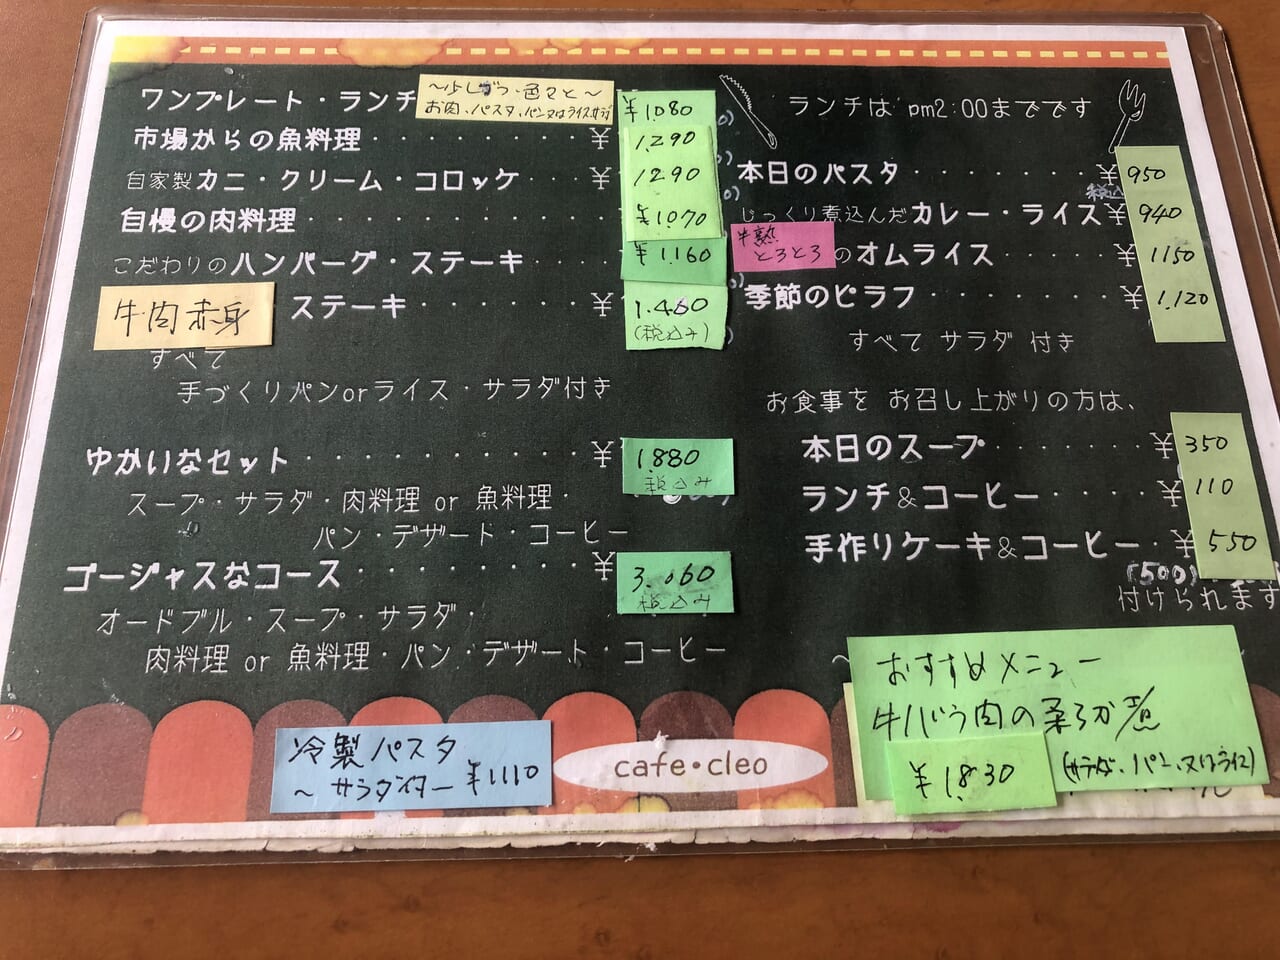 ワンプレート・ランチ
～少しずつ、色々と～
お肉、パスタ、パン又はライス、サラダ
¥1,080
市場からの魚料理 ・・・・・・・・ ¥ 1,290
自家製カニ・クリーム・コロッケ ・・・ ¥ 1290
自慢の肉料理 ・・・・・・・・・・ ¥1,070
こだわりのハンバーグ・ステーキ ・・・・ ¥1,160
牛肉赤身 ステーキ ・・・・・・・ ¥ 1,460
(税込み)
すべて
手づくりパンorライス・サラダ付き
ゆかいなセット ・・・・・・・・・・ ¥ 1,880
税込み
スープ・サラダ・肉料理 or 魚料理・
パン・デザート・コーヒー
ゴージャスなコース ・・・・・・・・ ¥ 3,060
税込み
オードブル・スープ・サラダ・
肉料理 or 魚料理・パン・デザート・コーヒー
冷製パスタ
～サラダ付 ¥1110
cafe・cleo
ランチは pm2:00までです
本日のパスタ ・・・・・・・ ¥ 950
税込
じっくり煮込んだカレー・ライス ¥ 940
半熟
とろとろ
のオムライス ・・・・・ ¥ 1150
季節のピラフ ・・・・・・・ ¥ 1,120
すべて サラダ 付き
お食事を お召し上がりの方は、
本日のスープ ・・・・・・ ¥ 350
ランチ&コーヒー ・・・・ ¥ 110
手作りケーキ&コーヒー ・ ¥ 550
(500)
付けられます
おすすめメニュー
牛バラ肉の柔らか煮
(サラダ、パン又はライス)
¥1,830